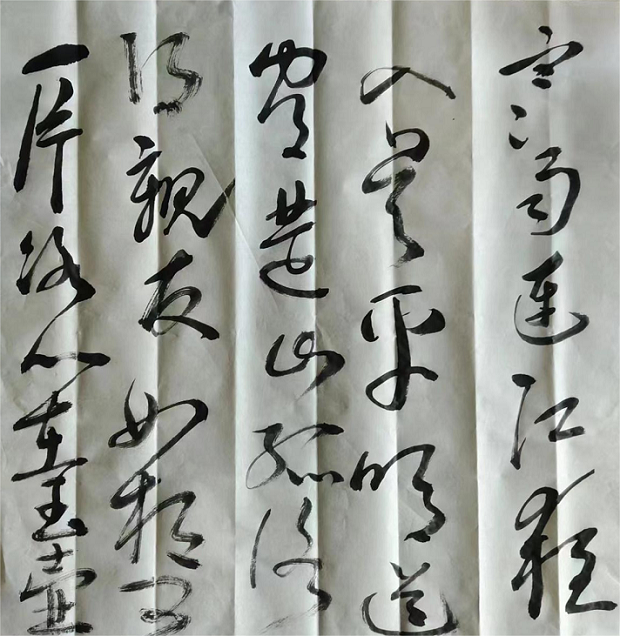 寒雨連江夜
入吴平明送
客楚山孤洛
陽親友如相问
一片冰心在玉壶